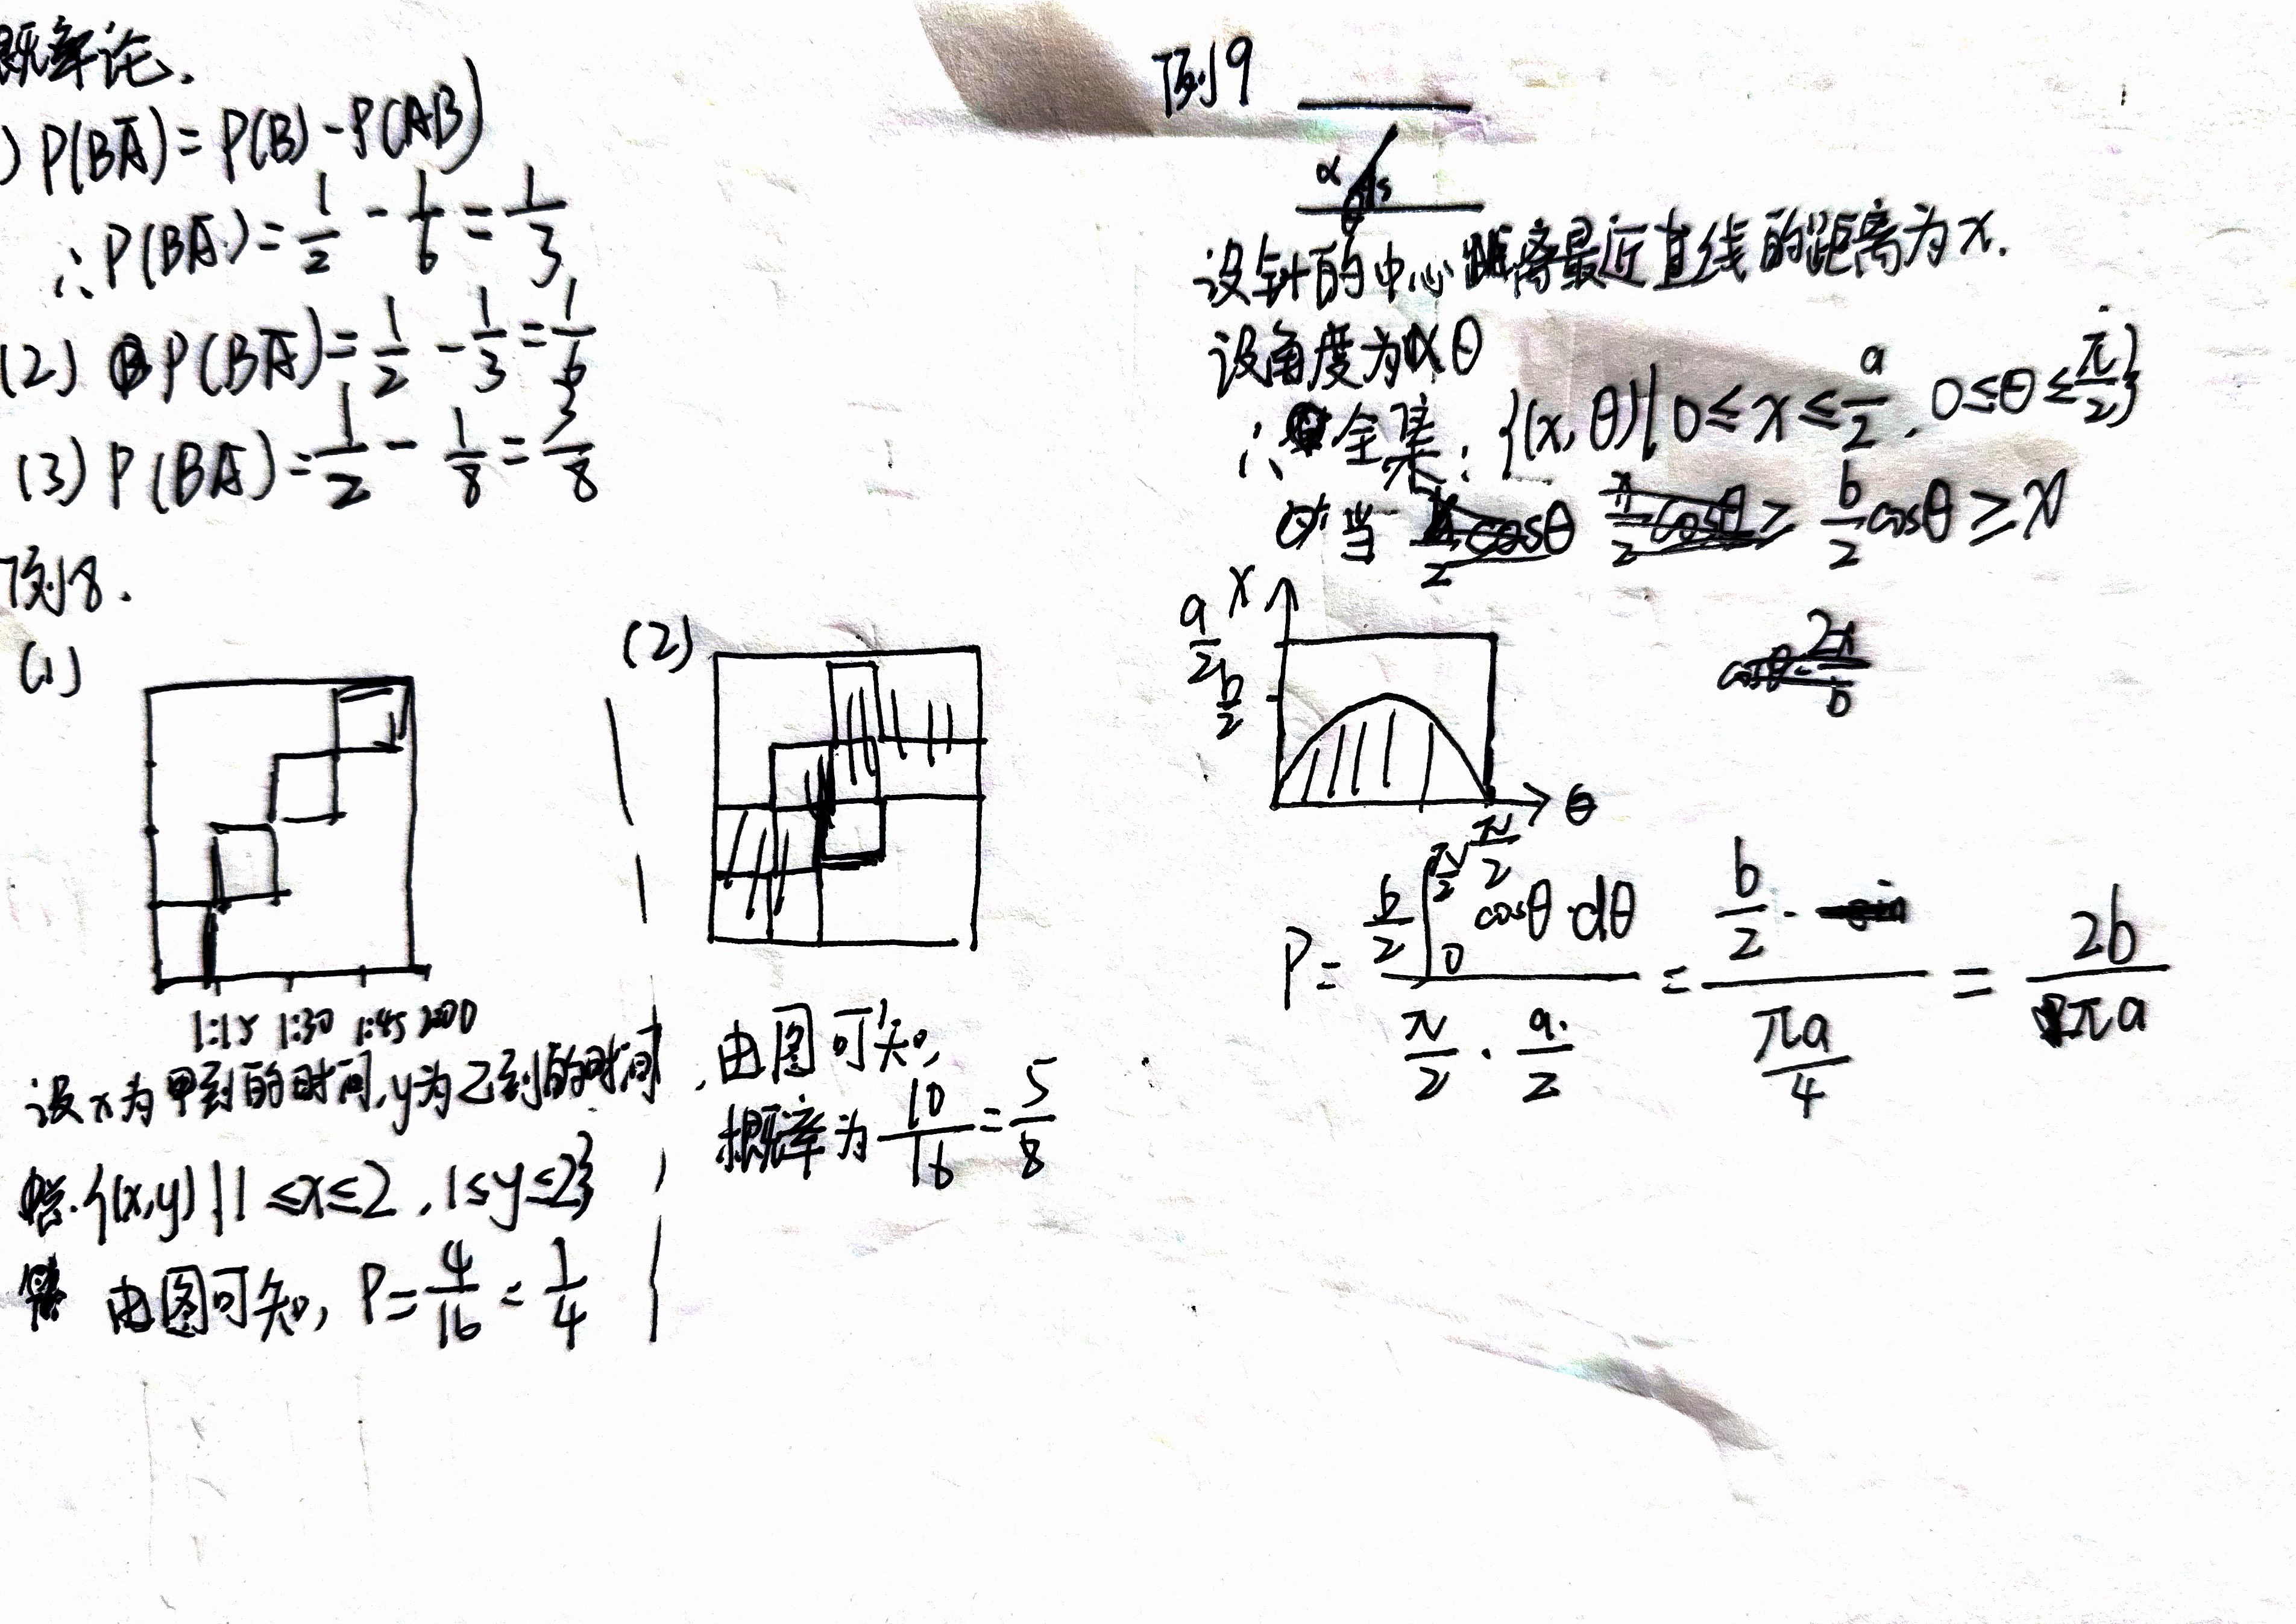 概率论.
) P(BĀ) = P(B) - P(AB)
∴ P(BĀ) = 1/2 - 1/6 = 1/3
(2) P(BĀ) = 1/2 - 1/3 = 1/6
(3) P(BĀ) = 1/2 - 1/8 = 3/8
例8.
(1)
1:15 1:30 1:45 2:00
设x为甲到的时间,y为乙到的时间
{(x,y) | 1 ≤ x ≤ 2 , 1 ≤ y ≤ 2}
由图可知, P = 4/16 = 1/4
(2)
由图可知,
概率为 10/16 = 5/8
例9
α
设针的中心距离最近直线的距离为x.
设角度为θ
∴ 全集: {(x,θ) | 0 ≤ x ≤ a/2 , 0 ≤ θ ≤ π/2}
当 b/2 cosθ ≥ x
x
a/2
b/2
θ
π/2
P = (b/2 ∫₀^{π/2} cosθ·dθ) / (π/2 · a/2) = (b/2 ·) / (πa/4) = 2b/(πa)